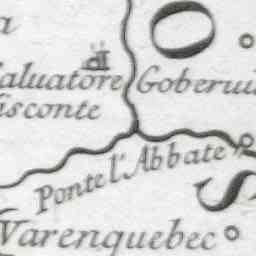 aluatore
isconte
Goberui
Ponte l'Abbate
Varenquebec